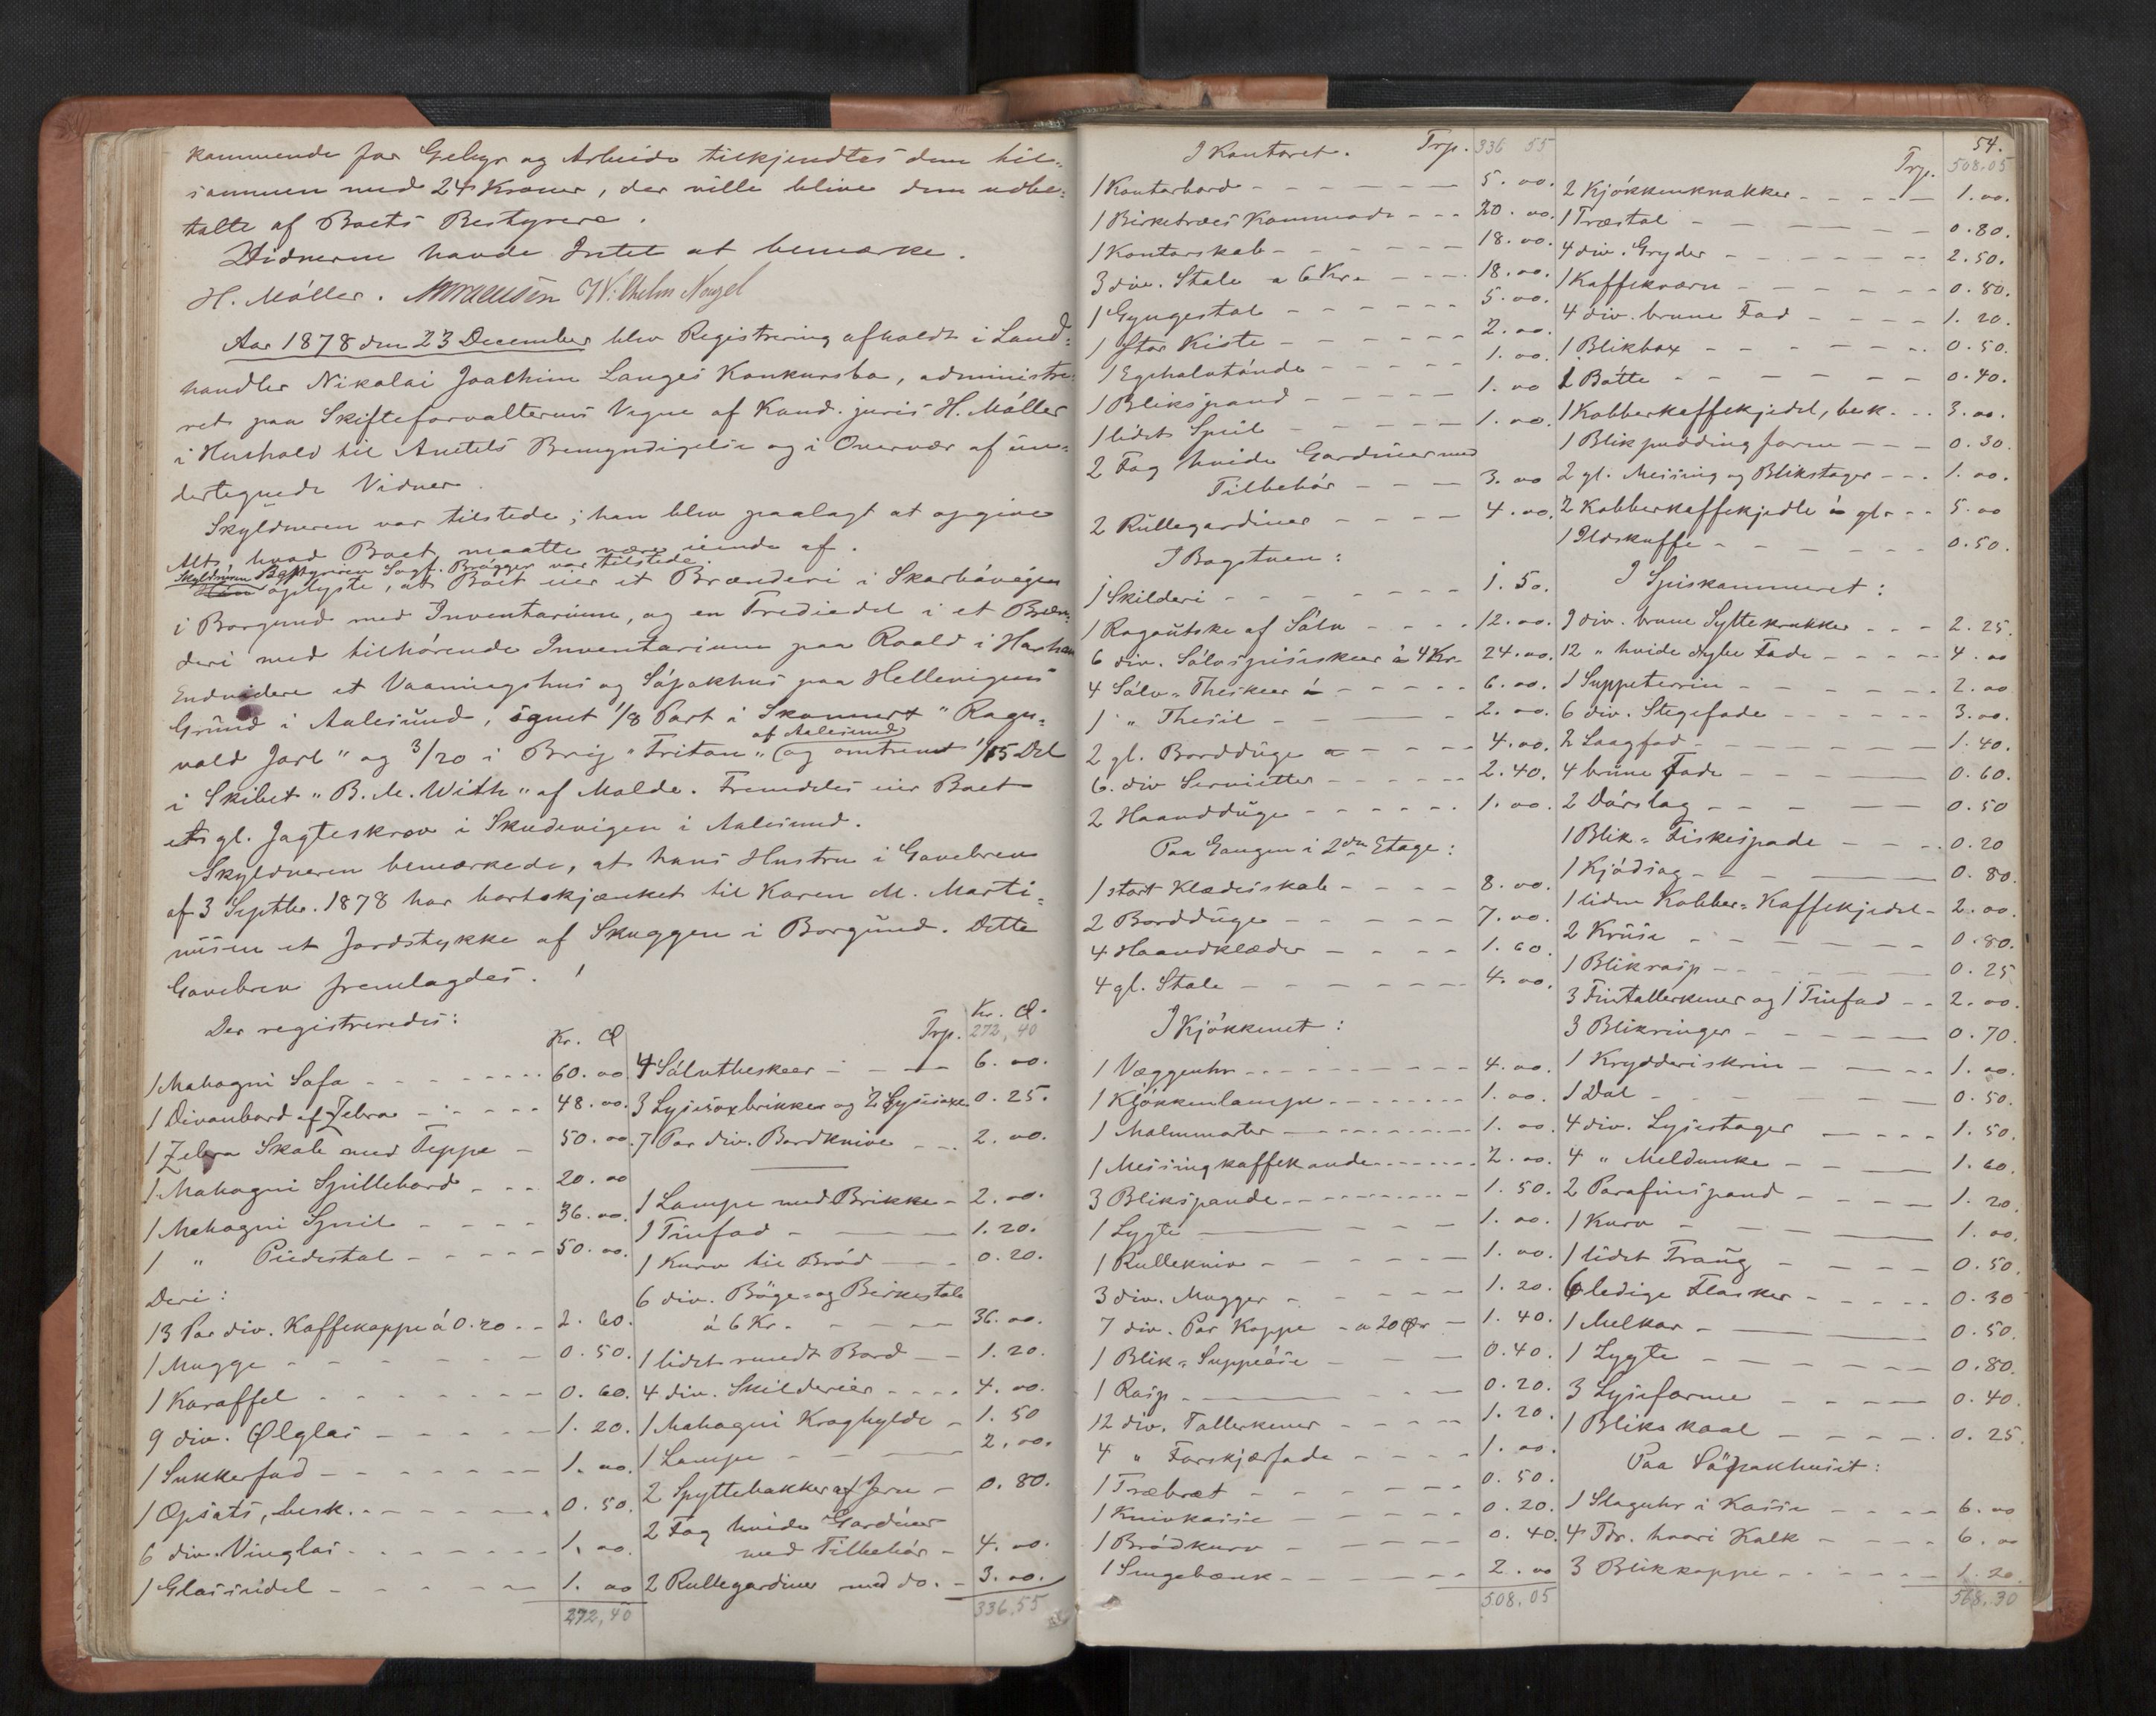 kommende for Gebyr og Arbeide tilkjendtes dem til-
sammen med 24 Kroner, der ville blive dem udbe-
talte af Boets Bestyrere.
Vidnerne havde Intet at bemærke.
H. Möller. Wilhelm
Aar 1878 den 23 December blev Registrering afholdt i Land-
handler Nikolai Joachim Langes Konkursbo, administre-
ret paa Skifteforvalterens Vegne af Kand. juris H. Möller
i Henhold til Amtets Bemyndigelse og i Overvær af un-
dertegnede Vidner.
Skyldneren var tilstede; han blev paalagt at opgive
Alt, hvad Boet maatte være eiende af.
Bestyreren Sagf. Brögger var tilstede.
Skyldneren oplyste, at Boet eier et Brænderi i Skarbövigen
i Borgund med Inventarium, og en Trediedel i et Bræn-
deri med tilhörende Inventarium paa Roald i Haram
Endvidere et Vaaningshus og Söpakhus paa Hellevigens
Grund i Aalesund, 1/8 Part i Skonnert "Ragn-
vald Jarl" og 3/20 i Brig "Triton" af Aalesund (og omtrent 1/15 Del
i Skibet "B. M. With" af Molde. Fremdeles eier Boet
et gl. Jagteskrov i Skudevigen i Aalesund.
Skyldneren bemærkede, at hans Hustru i Gavebrev
af 3 Septbr. 1878 har bortskjænket til Karen M. Marti-
nusen et Jordstykke af Skuggen i Borgund. Dette
Gavebrev fremlagdes.
Der registreredes:
Kr. Ø
1 Mahogni Sofa 60.00
1 Divanbord af Zebra 48.00.
1 Zebra Skab med Teppe 50.00
1 Mahogni Spillebord 20.00
1 Mahogni Speil 36.00.
1 " Piedestal 50.00.
Deri:
13 Par div. Kaffekoppe á 0.20 2.60.
1 Mugge 0.50.
1 Karaffel 0.60.
9 div. Ølglas 1.20.
1 Sukkerfad 1.00.
1 Opsats, besk. 0.50.
6 div. Vinglas 1.00.
1 Glasseidel 1.00
272,40
Kr. Ø.
Trp. 272,40
4 Sölvtheskeer 6.00.
3 Lysesaxbrikker og 2 Lysesaxe 0.25.
7 Par div. Bordknive 2.00.
1 Lampe med Brikke 2.00.
1 Tinfad 1.20.
1 Kurv til Bröd 0.20.
6 div. Böge- og Birkestole
á 6 Kr. 36.00.
1 lidet rundt Bord 1.20.
4 div. Skilderier 4.00.
1 Mahogni Kroghylde 1.50
1 Lampe 2.00.
2 Spyttebakker af Jern 0.80.
2 Fag hvide Gardiner
med Tilbehör 4.00.
2 Rullegardiner med do. 3.00.
336,55
I Kontoret. Trp. 336 55
1 Kontorbord 5.00.
1 Birketræes Kommode 20.00.
1 Kontorskab 18.00.
3 div. Stole a 6 Kr. 18.00.
1 Gyngestol 5.00.
1 stor Kiste 2.00.
1 1.00.
1 Blikspand 1.00
1 lidet Speil 1.00.
2 Fag hvide Gardiner med
Tilbehör 3.00
2 Rullegardiner 4.00.
I Bagstuen:
1 Skilderi 1.50.
1 Ragoutske af Sölv 12.00.
6 div. Sölvspiseskeer á 4 Kr. 24.00.
4 Sölv-Theskeer 6.00.
1 " Thesil 2.00.
2 gl. Bordduge 4.00.
6. div Servietter 2.40.
2 Haandduge 1.00.
Paa Gangen i 2den Etage:
1 stort Klædeskab 8.00.
2 Bordduge 7.00.
4 Haandklæder 1.60.
4 gl. Stole 4.00.
I Kjökkenet:
1 Væggeuhr 4.00.
1 Kjökkenlampe 1.00.
1 Malmmorter 1.00.
1 Messingkaffekande 2.00.
3 Blikspande 1.50.
1 Lygte 1.00.
1 Rullekniv 1.00.
3 div. Mugger 1.20.
7 div. Par Koppe a 20 Ør 1.40.
1 Blik-Suppeöse 0.40.
1 Rasp 0.20.
12 div. Tallerkener 1.20.
4 " Forskjærfade 1.00.
1 Træbræt 0.50.
1 Knivkasse 0.20.
1 Brödkurv 0.40.
1 Sengebænk 2.00
508.05
54.
Trp. 508.05
2 Kjökkenkrakker 1.00.
1 Træstol 0.80.
4 div. Gryder 2.50.
1 Kaffekværn 0.80.
4 div. brune Fad 1.20.
1 Blikbox 0.50.
1 Bötte 0.40.
1 Kobberkaffekjedel, besk. 3.00.
1 Blikpuddingform 0.30
2 gl. Messing og Blikstager 1.00.
2 Kobberkaffekjedle gl. 5.00
1 Ildskuffe 0.50.
I Spiskammeret:
9 div. brune Syltekrukker 2.25.
12 " hvide dybe Fade 4.00
1 Suppeterrin 2.00
6 div. Stegefade 3.00.
2 Laagfad 1.40.
4 brune Fade 0.60.
2 Dörslag 0.50
1 Blik-Fiskespade 0.20
1 Kjödsag 0.80.
1 liden Kobber-Kaffekjedel 2.00.
2 Kruse 0.80.
1 Blikrasp 0.25
3 Tintallerkener og 1 Tinfad 2.00.
3 Blikringer 0.70.
1 Krydderiskrin 1.00.
1 Dal 0.50.
4 div. Lysestager 1.50.
4 " Meldunke 1.60
2 Parafinspand 1.20.
1 Kurv 1.00.
1 lidet Traug 0.50.
6 ledige Flasker 0.30
1 Melkar 0.50.
1 Lygte 0.80.
3 Lyseforme 0.40.
1 Blikskaal 0.25.
Paa Söpakhuset:
1 Slaguhr i Kasse 6.00
4 Tdr. hvori Kalk 6.00
3 Blikkoppe 1.20.
568.30